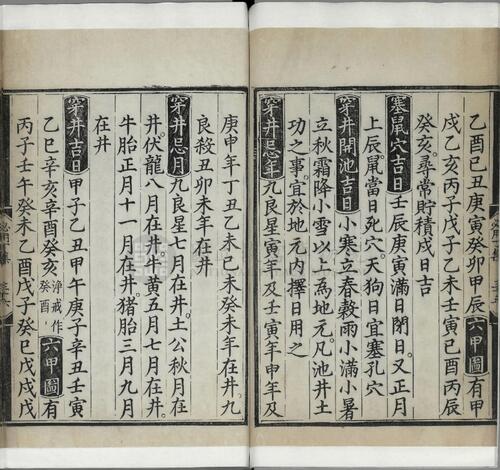 乙酉己丑庚寅癸卯甲辰六甲圖有甲
戌乙亥丙子戊子乙未壬寅己酉丙辰
癸亥尋常貯積成日吉
塞鼠穴吉日壬辰庚寅滿日閉日又正月
上辰鼠當日死穴天狗日宜塞孔穴
穿井開池吉日小寒立春穀雨小滿小暑
立秋霜降小雪以上為地元凡池井土
功之事宜於地元內擇日用之
穿井忌年九良星寅年及壬寅年申年及
庚申年丁丑乙未己未癸未年在井九
良殺丑卯未年在井
穿井忌月九良星七月在井土公秋月在
井伏龍八月在井牛黃五月七月在井
牛胎正月十一月在井豬胎三月九月
在井
穿井吉日甲子乙丑甲午庚子辛丑壬寅
乙巳辛亥辛酉癸亥淨戒作癸酉六甲圖有
丙子壬午癸未乙酉戊子癸巳戊戌戊